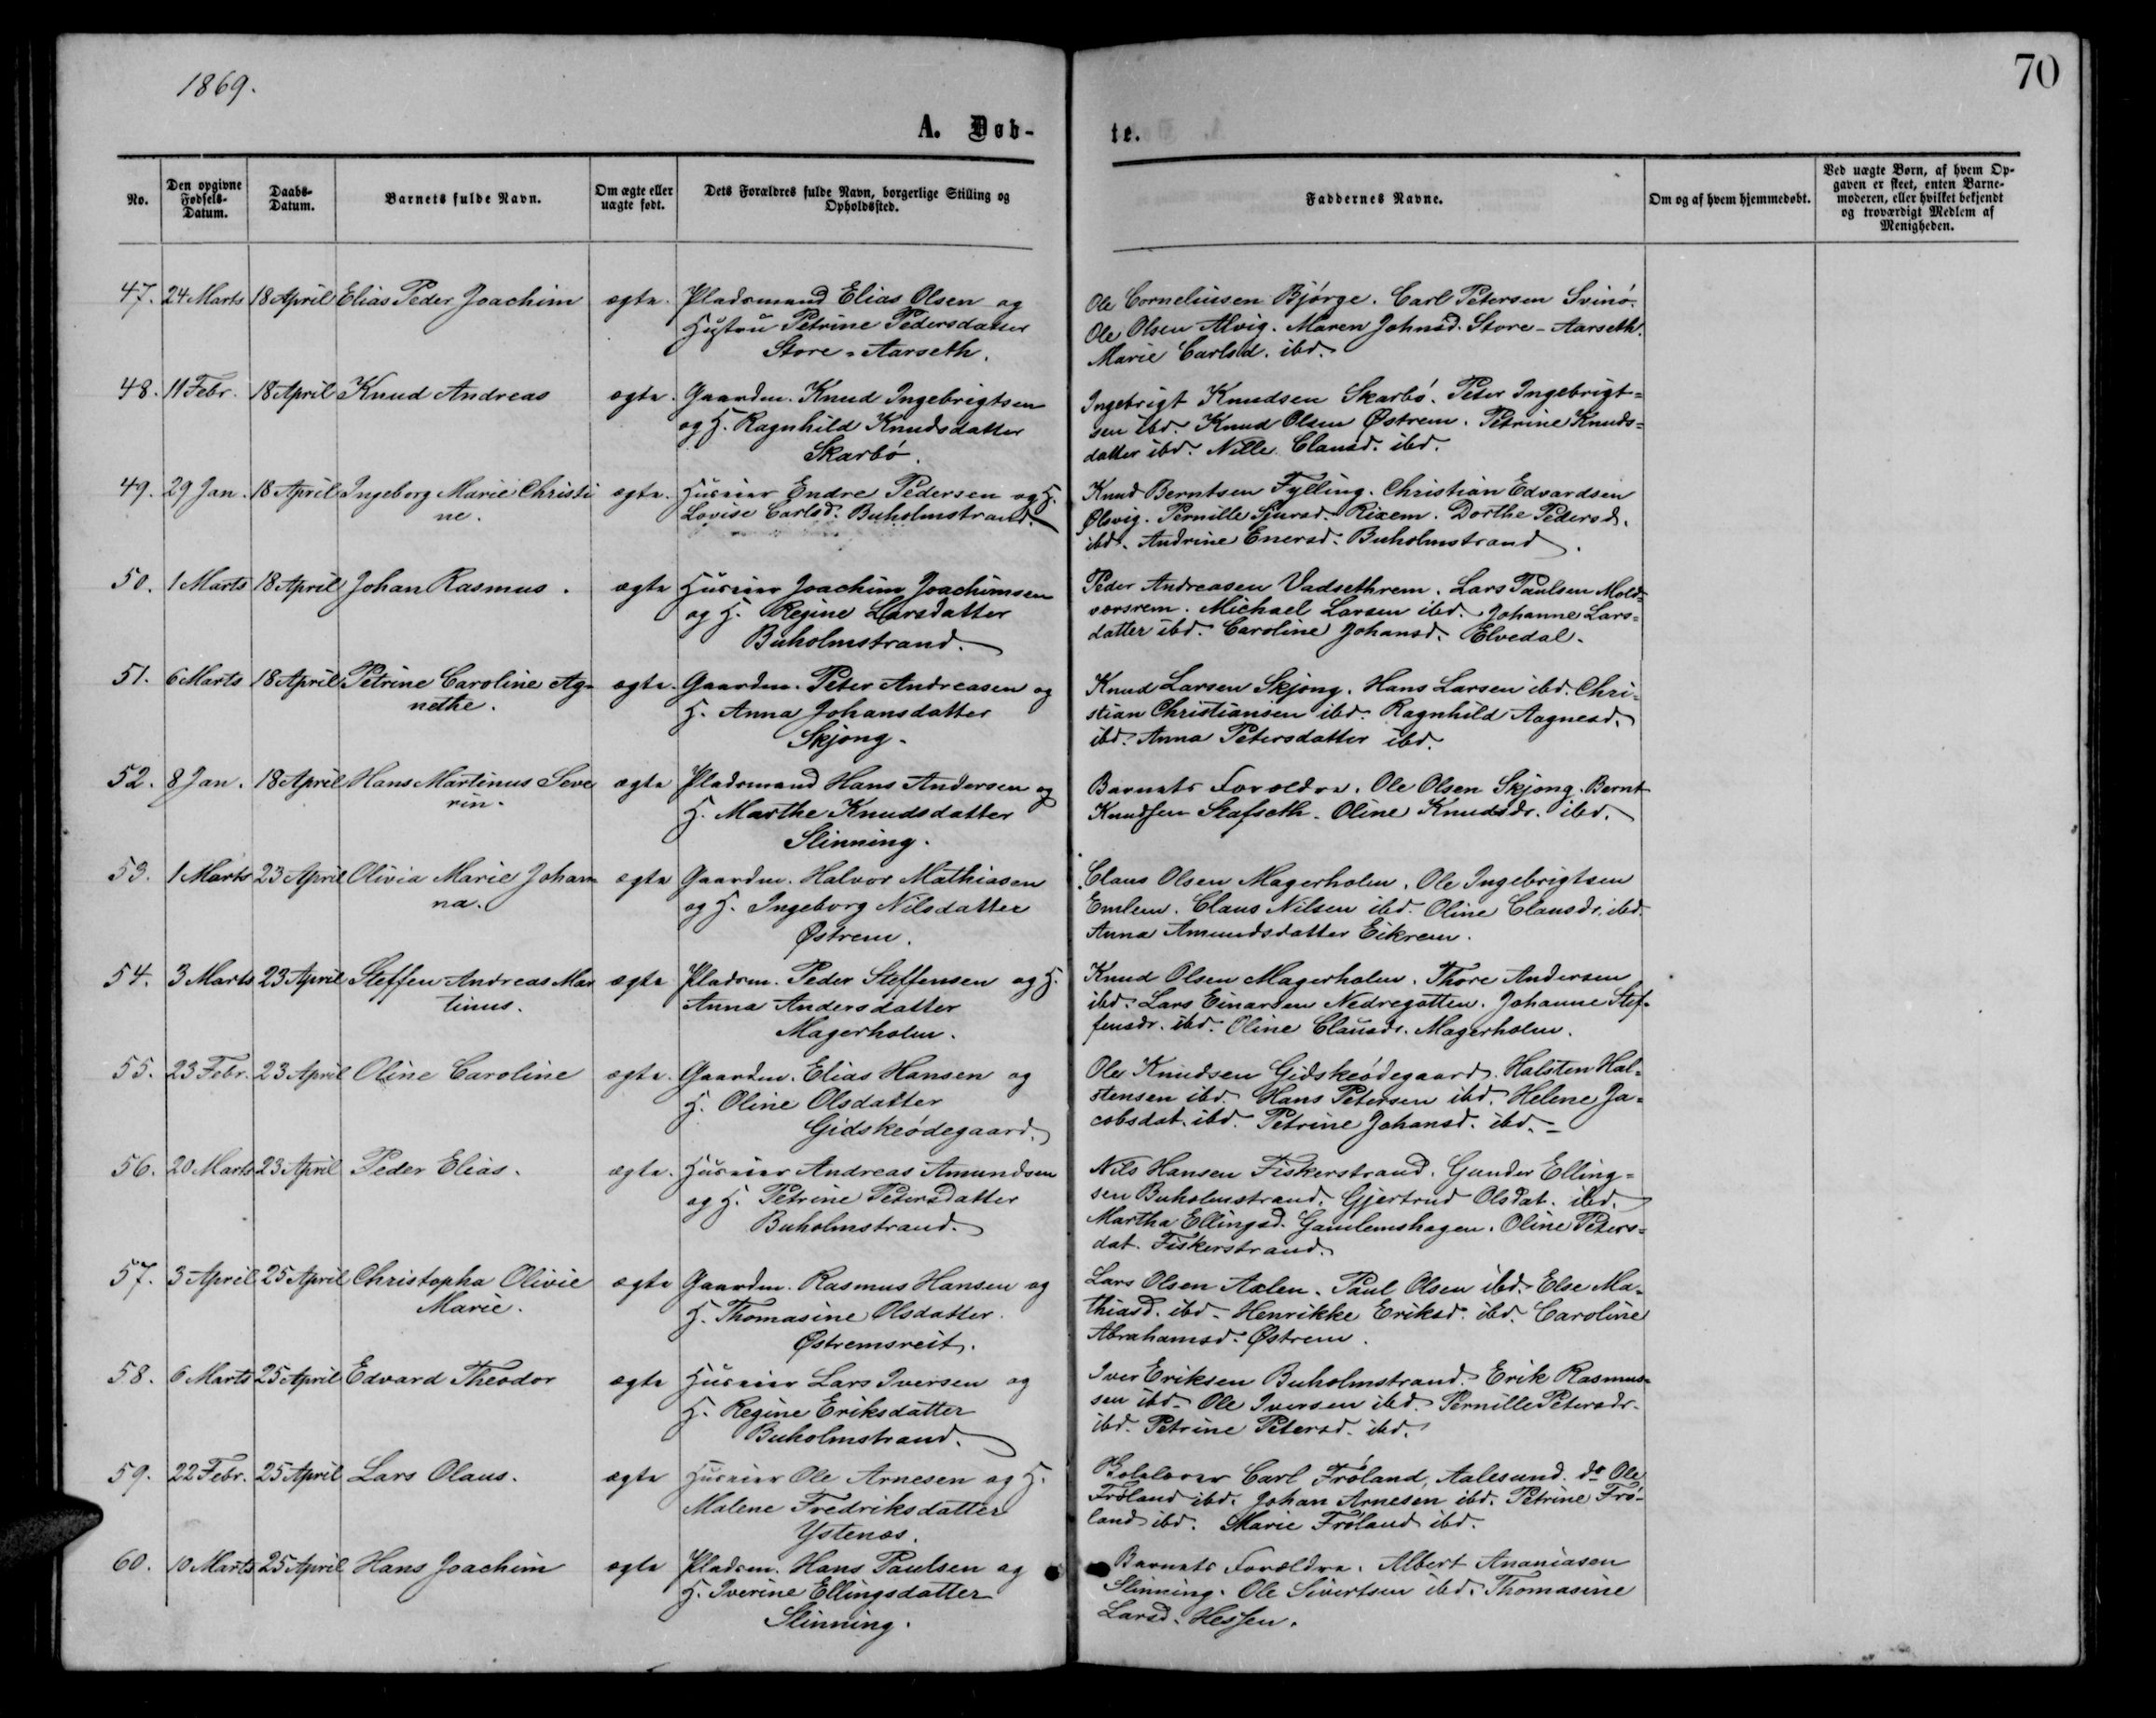 1869.
70
A. Døb-
te.
No.
Den opgivne Fødsels-Datum.
Daabs-Datum.
Barnets fulde Navn.
Om ægte eller uægte født.
Dets Forældres fulde Navn, borgerlige Stilling og Opholdssted.
Faddernes Navne.
Om og af hvem hjemmedøbt.
Ved uægte Børn, af hvem Opgaven er skeet, enten Barnemoderen, eller hvilket bekjendt og troværdigt Medlem af Menigheden.
47. 24 Marts 18 April Elias Peder Joachim ægte. Pladsmand Elias Olsen og
Hustru Petrine Pedersdatter
Store-Aarseth.
Ole Corneliussen Bjørge. Carl Petersen Svinö.
Ole Olsen Alvig. Maren Johnsd. Store-Aarseth.
Marie Carlsd. ibd.
48. 11 Febr. 18 April Knud Andreas ægte. Gaardm. Knud Ingebrigtsen
og H. Ragnhild Knudsdatter
Skarbö.
Ingebrigt Knudsen Skarbö. Peter Ingebrigt=
sen ibd. Knud Olsen Østrem. Petrine Knuds=
datter ibd. Nille Clausd. ibd.
49. 29 Jan. 18 April Ingeborg Marie Christi
ne.
ægte. Huseier Endre Pedersen og H.
Lovise Carlsd. Buholmstrand.
Knud Berntsen Fylling. Christian Edvardsen
Olsvig. Pernille Sjursd. Rixem. Dorthe Pedersd.
ibd. Andrine Enersd. Buholmstrand.
50. 1 Marts 18 April Johan Rasmus. ægte Huseier Joachim Joachimsen
og H. Regine Larsdatter
Buholmstrand.
Peder Andreasen Vadsethrem. Lars Paulsen Mold=
værsrem. Michael Larsen ibd. Johanne Lars=
datter ibd. Caroline Johansd. Elvedal.
51. 6 Marts 18 April Petrine Caroline Ag-
nethe.
ægte. Gaardm. Peter Andreasen og
H. Anna Johansdatter
Skjong.
Knud Larsen Skjong. Hans Larsen ibd. Chri=
stian Christiansen ibd. Ragnhild Aagnesd.
ibd. Anna Petersdatter ibd.
52. 8 Jan. 18 April Hans Martinus Seve
rin.
ægte Pladsmand Hans Andersen og
H. Marthe Knudsdatter
Slinning.
Barnets Forældre. Ole Olsen Skjong. Bernt
Knudsen Stafseth. Oline Knudsdr. ibd.
53. 1 Marts 23 April Olivia Marie Johan-
na.
ægte Gaardm. Halvor Mathiasen
og H. Ingeborg Nilsdatter
Østrem.
Claus Olsen Magerholm. Ole Ingebrigtsen
Emlem. Claus Nilsen ibd. Oline Clausdr. ibd.
Anna Amundsdatter Eikrem.
54. 3 Marts 23 April Steffen Andreas Mar
tinus.
ægte Pladsm. Peder Steffensen og H.
Anna Andersdatter
Magerholm.
Knud Olsen Magerholm. Thore Andersen
ibd. Lars Einarsen Nedregotten. Johanne Stef-
fensdr. ibd. Oline Clausdr. Magerholm.
55. 23 Febr. 23 April Oline Caroline ægte. Gaardm. Elias Hansen og
H. Oline Olsdatter
Gidskeödegaard.
Ole Knudsen Gidskeödegaard. Halsten Hal=
stensen ibd. Hans Petersen ibd. Helene Ja=
cobsdat. ibd. Petrine Johansd. ibd.
56. 20 Marts 23 April Peder Elias. ægte. Huseier Andreas Amundsen
og H. Petrine Petersdatter
Buholmstrand.
Nils Hansen Fiskerstrand. Gunder Elling=
sen Buholmstrand. Gjertrud Olsdat. ibd.
Martha Ellingsd. Gamlemshagen. Oline Peters=
dat. Fiskerstrand.
57. 3 April 25 April Christopha Olivie
Marie.
ægte Gaardm. Rasmus Hansen og
H. Thomasine Olsdatter.
Østremsreit.
Lars Olsen Axlen. Paul Olsen ibd. Else Ma-
thiasd. ibd. Henrikke Eriksd. ibd. Caroline
Abrahamsd. Østrem.
58. 6 Marts 25 April Edvard Theodor ægte Huseier Lars Iversen og
H. Regine Eriksdatter
Buholmstrand.
Iver Eriksen Buholmstrand. Erik Rasmus=
sen ibd. Ole Iversen ibd. Pernille Petersdr.
ibd. Petrine Petersd. ibd.
59. 22 Febr. 25 April Lars Olaus. ægte Huseier Ole Arnesen og H.
Malene Fredriksdatter
Ystenæs.
Carl Fröland, Aalesund. do Ole
Fröland ibd. Johan Arnesen ibd. Petrine Frö-
land ibd. Marie Fröland ibd.
60. 10 Marts 25 April Hans Joachim ægte Pladsm. Hans Paulsen og
H. Iverine Ellingsdatter
Slinning.
Barnets Forældre. Albert Ananiasen
Slinning. Ole Sivertsen ibd. Thomasine
Larsd. Hessen.